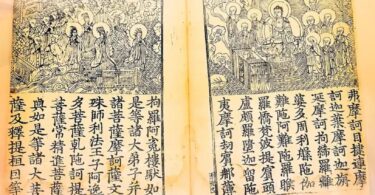 弗摩訶目揵連摩
訶迦葉摩訶迦旃
延摩訶拘絺羅離
婆多周利槃陀伽
難陀阿難陀羅睺
羅憍梵波提賓頭
盧頗羅墮迦留陀
夷摩訶劫賓那薄
拘羅阿㝹樓馱如
是等諸大弟子并
諸菩薩摩訶薩文
殊師利法王子阿逸
多菩薩乾陀訶提
菩薩常精進菩薩
與如是等諸大菩
薩及釋提桓因等